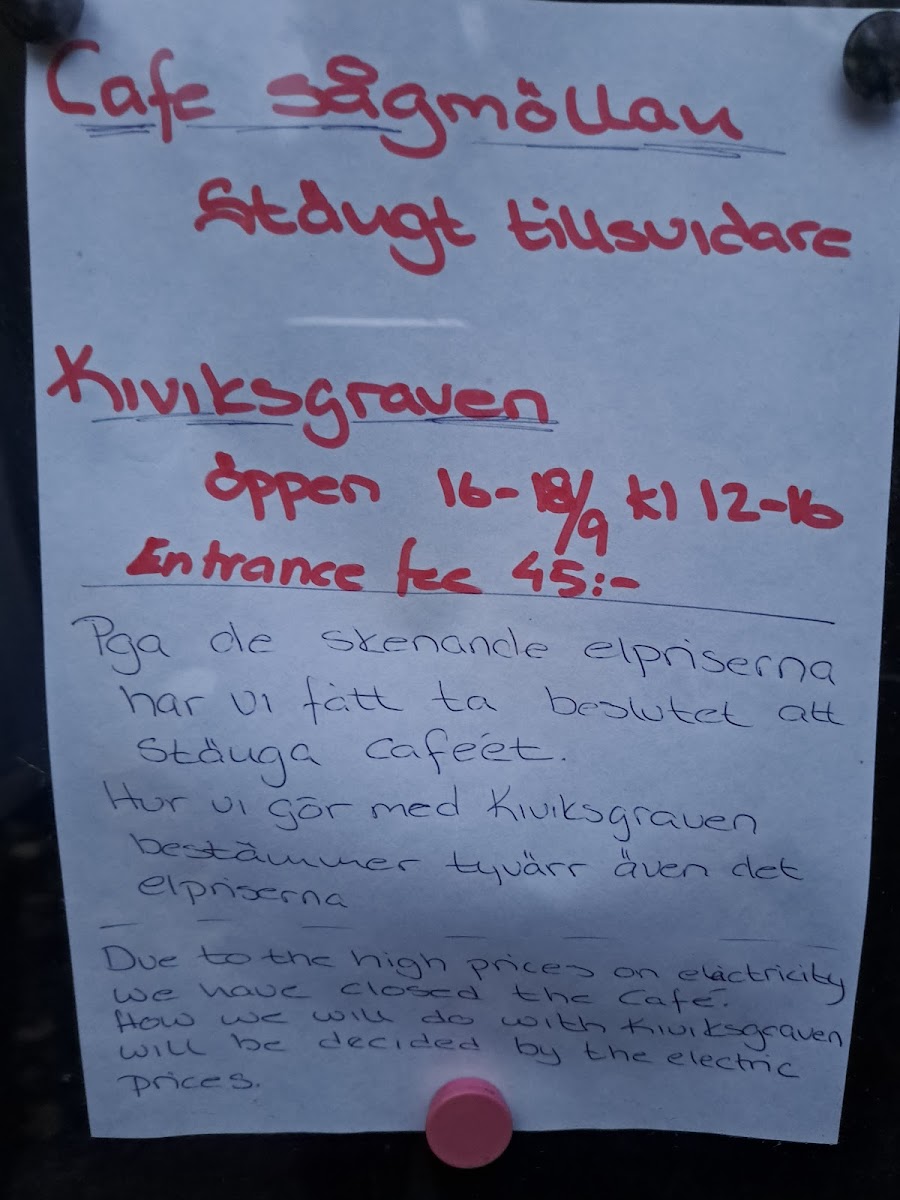 Cafe sågmöllan
Stängt tillsvidare
Kiviksgraven
öppen 16-18/9 kl 12-16
Entrance fee 45:-
Pga de skenande elpriserna
har vi fått ta beslutet att
stänga caféet.
Hur vi gör med Kiviksgraven
bestämmer tyvärr även det
elpriserna
Due to the high prices on electricity
we have closed the Café.
How we will do with Kiviksgraven
will be decided by the electric
prices.